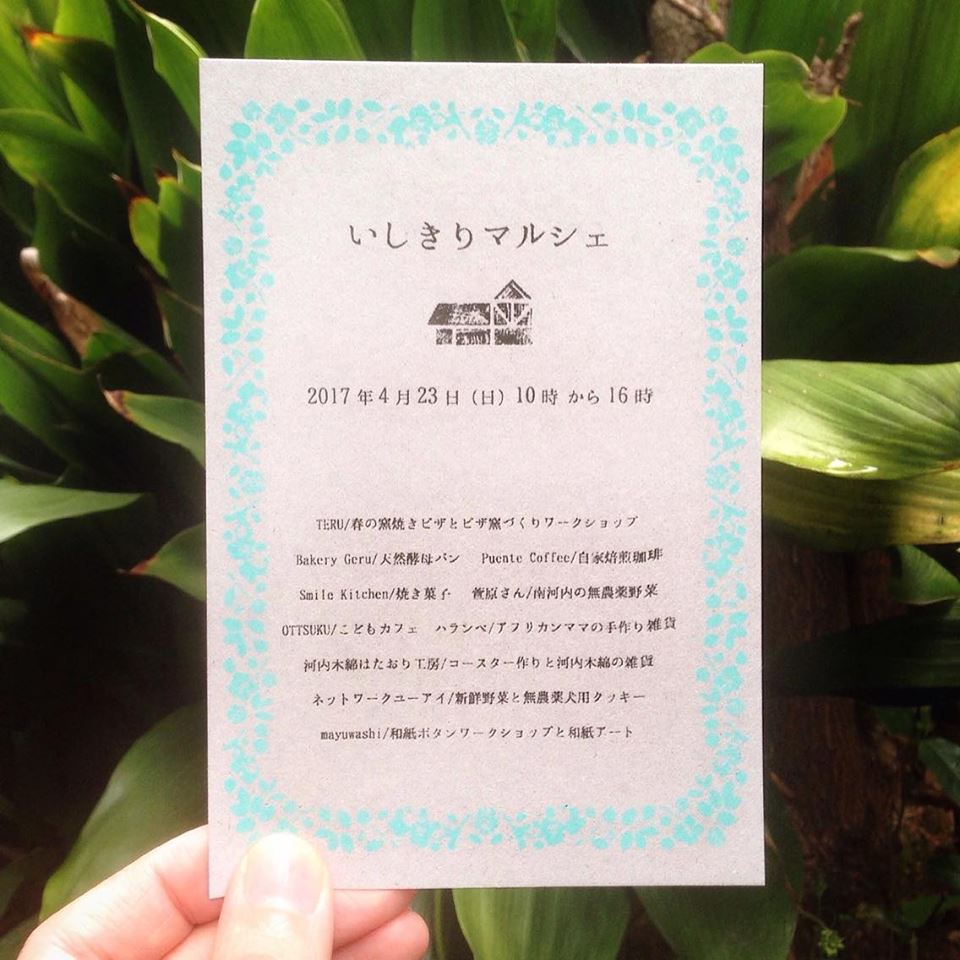 いしきりマルシェ
2017年4月23日（日）10時から16時
TERU/春の窯焼きピザとピザ窯づくりワークショップ
Bakery Geru/天然酵母パン　Puente Coffee/自家焙煎珈琲
Smile Kitchen/焼き菓子　萱原さん/南河内の無農薬野菜
OTTSUKU/こどもカフェ　ハランベ/アフリカンママの手作り雑貨
河内木綿はたおり工房/コースター作りと河内木綿の雑貨
ネットワークユーアイ/新鮮野菜と無農薬犬用クッキー
mayuwashi/和紙ボタンワークショップと和紙アート